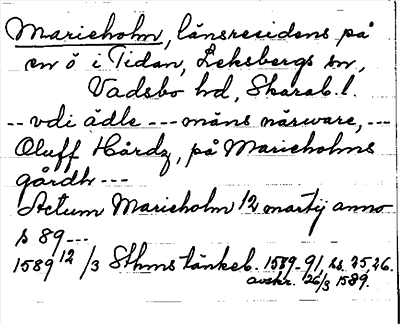 Marieholm, länsresidens på
en ö i Tidan, Leksbergs sn,
Vadsbo hd, Skarab. l.
-- vdi ädle --- mäns närware, ---
Oluff Hårdz, på Marieholms
gårdh ---
Actum Marieholm 12 martij anno
s 89 ---
1589 12/3 Sthms tänkeb. 1589-91, ss. 25, 26.
avskr. 26/3 1589.